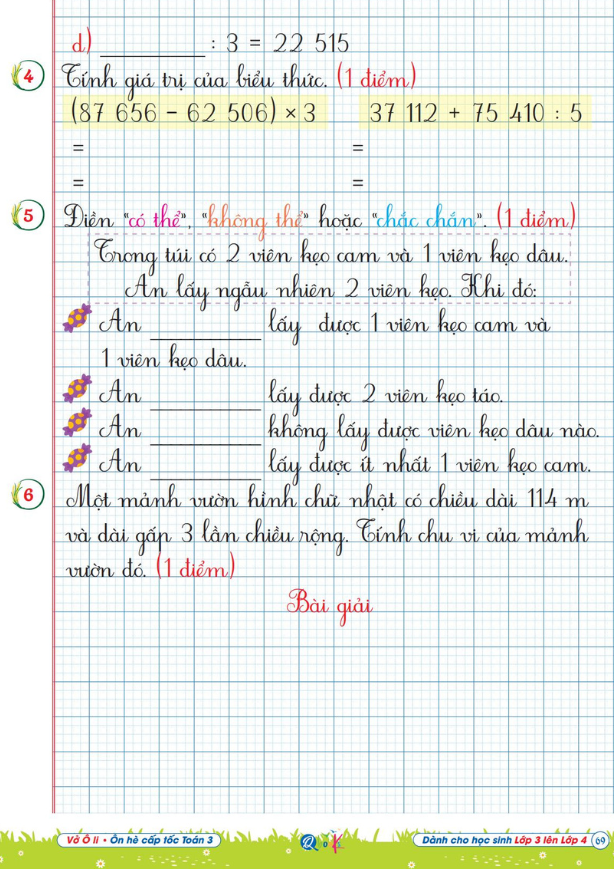 d) ____________ : 3 = 22 515
4 Tính giá trị của biểu thức. (1 điểm)
(87 656 – 62 506) × 3 37 112 + 75 410 : 5
= =
= =
5 Điền "có thể", "không thể" hoặc "chắc chắn". (1 điểm)
Trong túi có 2 viên kẹo cam và 1 viên kẹo dâu.
An lấy ngẫu nhiên 2 viên kẹo. Khi đó:
An ____________ lấy được 1 viên kẹo cam và
1 viên kẹo dâu.
An ____________ lấy được 2 viên kẹo táo.
An ____________ không lấy được viên kẹo dâu nào.
An ____________ lấy được ít nhất 1 viên kẹo cam.
6 Một mảnh vườn hình chữ nhật có chiều dài 114 m
và dài gấp 3 lần chiều rộng. Tính chu vi của mảnh
vườn đó. (1 điểm)
Bài giải
Vở Ô li • Ôn hè cấp tốc Toán 3 Dành cho học sinh Lớp 3 lên Lớp 4 69